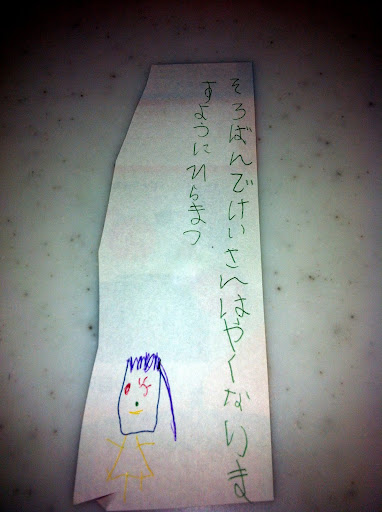 そろばんでけいさんはやくなりま
すようにひらまつ